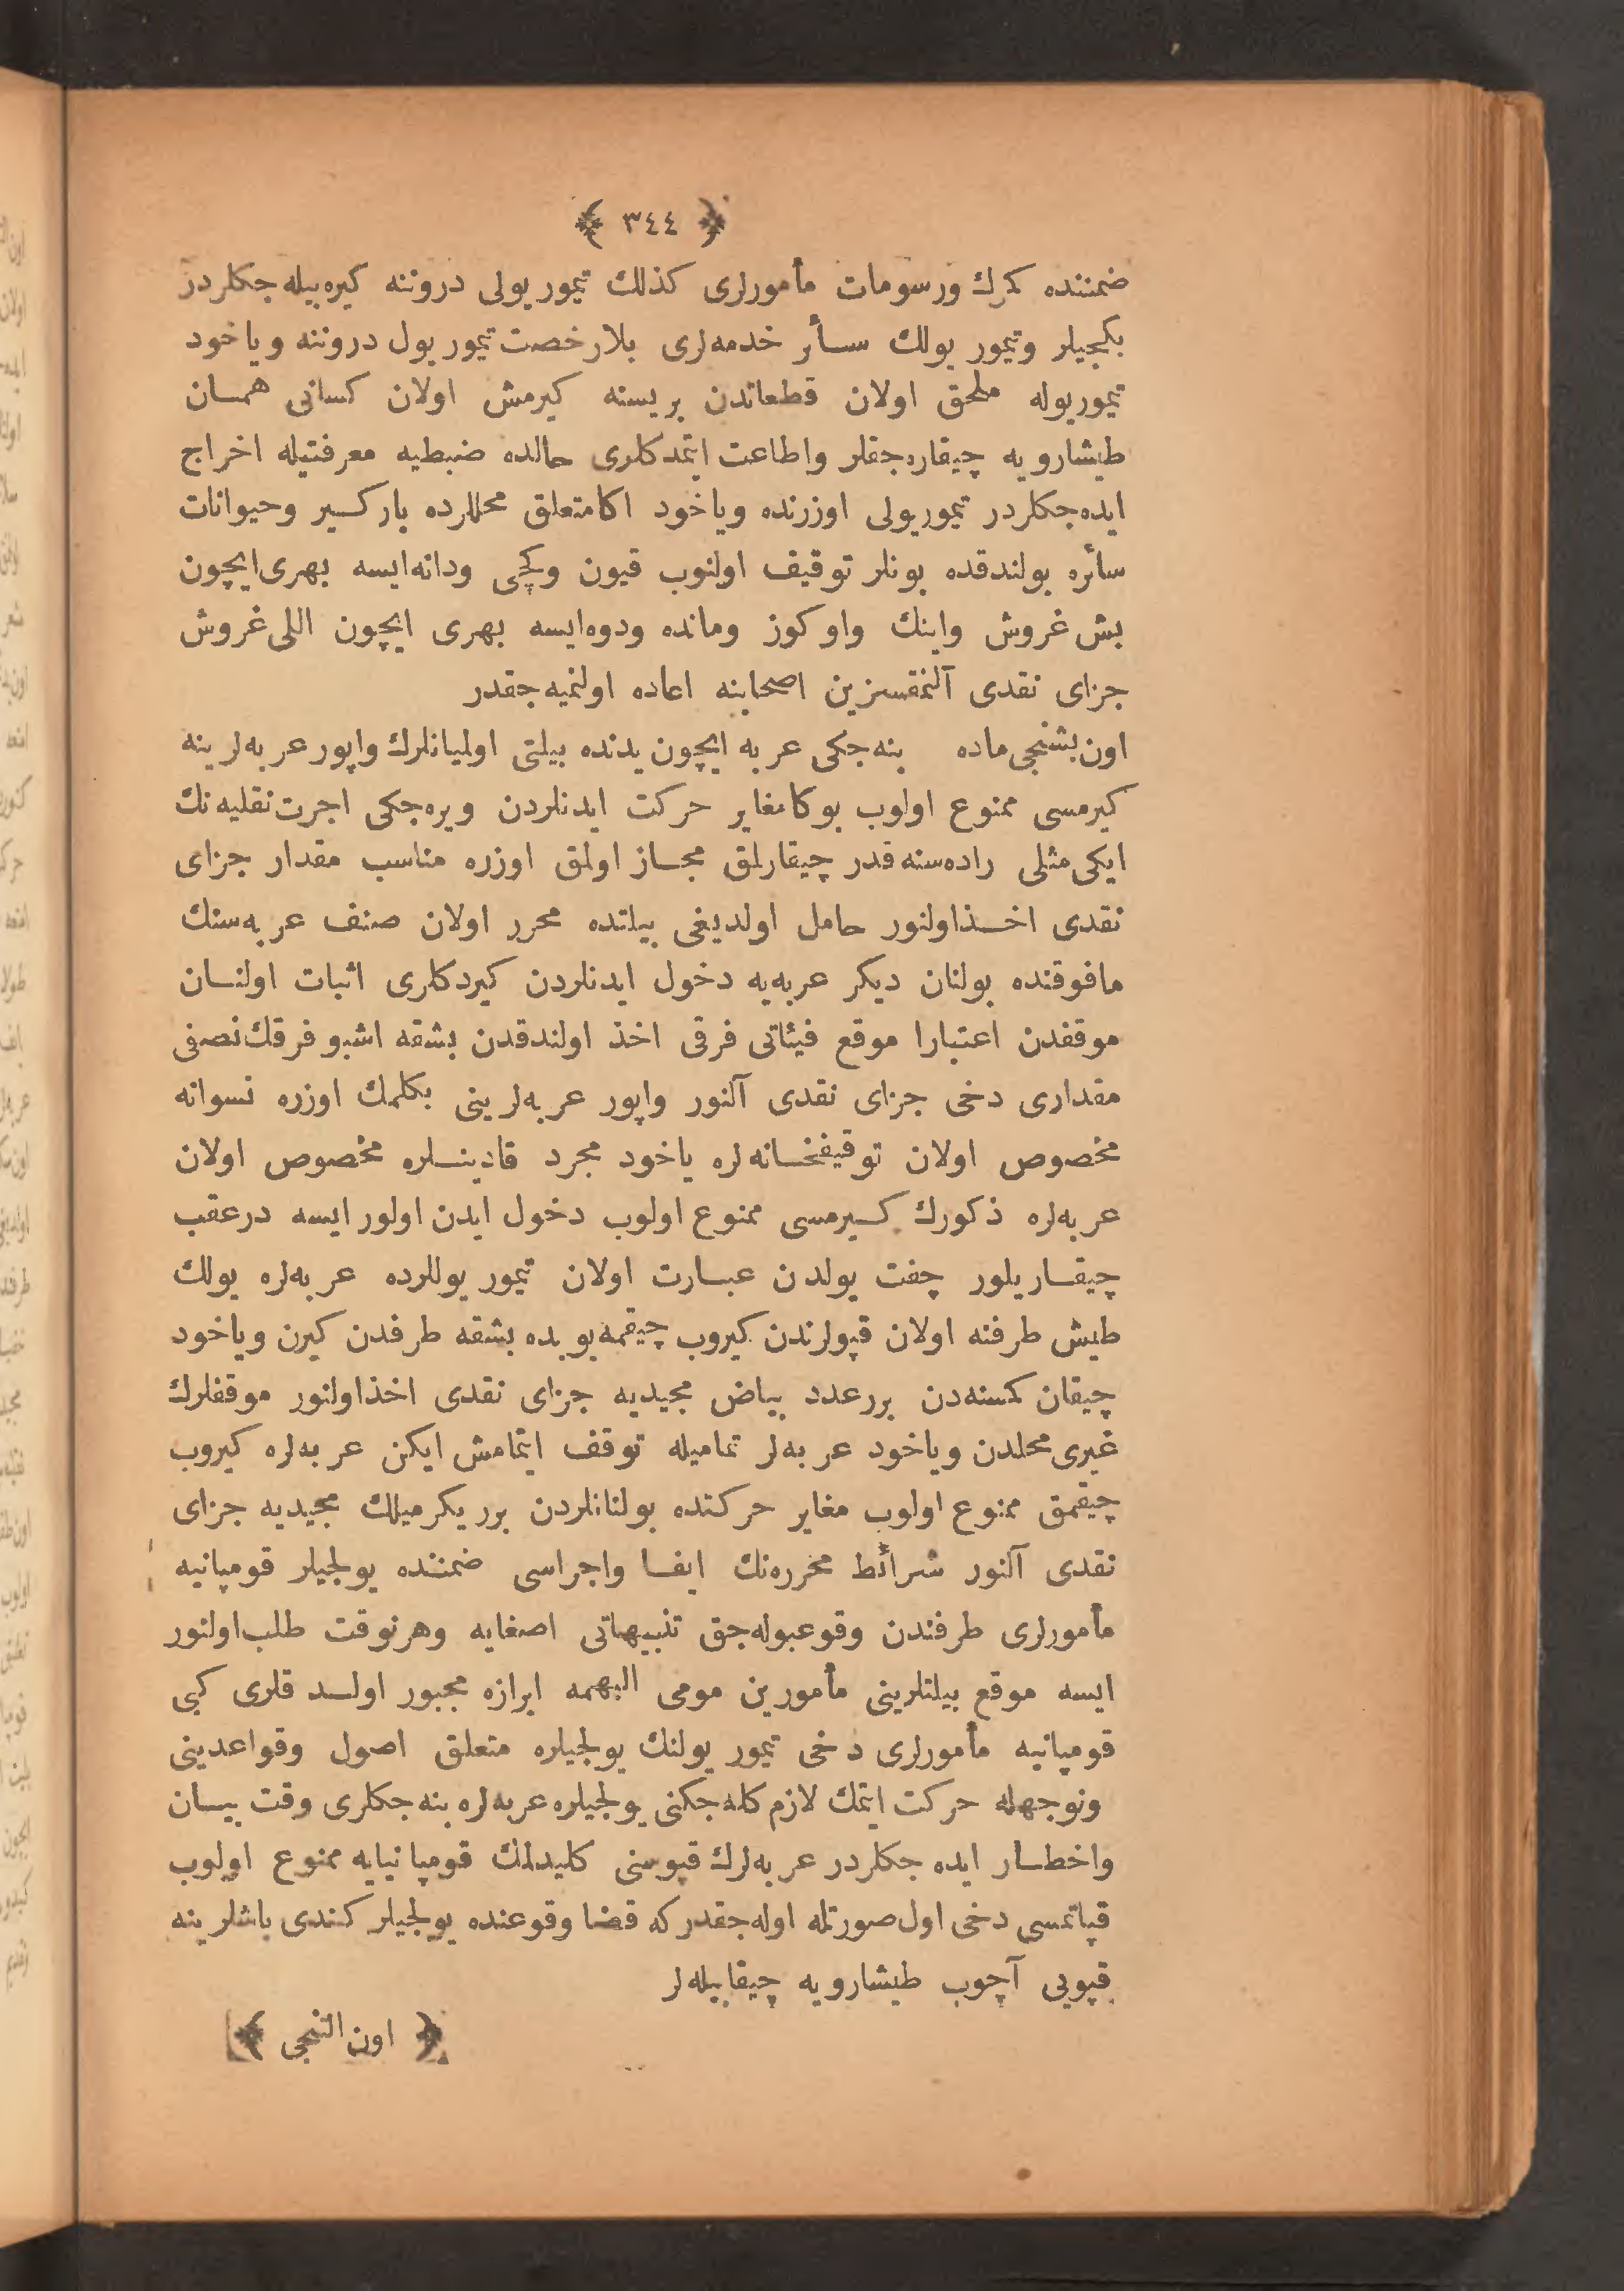 ﴿ ٣٤٤ ﴾
ضمننده كمرك ورسومات مأمورلرى كذلك تيمور يولى درونه كيره بيله جكلردر
بكجيلر وتيمور يولك سـأر خدمه‌لرى بلارخصت تيمور يول درونه وياخود
تيموريوله ملحق اولان قطعاتدن بريسنه كيرمش اولان كسانى همـان
طيشارويه چيقاره‌جقلر واطاعت ايتمدكلرى حالده ضبطيه معرفتيله اخراج
ايده‌جكلردر تيموريولى اوزرنده وياخود اكا متعلق محللرده باركير وحيوانات
سأره بولندقده بونلر توقيف اولنوب قيون وكچى ودانه ايسه بهرى ايچون
بش غروش واينك واوكوز ومانده ودوه ايسه بهرى ايچون اللى غروش
جزاى نقدى آلنمقسزين اصحابنه اعاده اولنميه جقدر
اون بشنجى ماده بنه‌جكى عربه ايچون يدنده بيلتى اوليانلرك واپور عربه‌لرينه
كيرمسى ممنوع اولوب بوكا مغاير حركت ايدنلردن ويره‌جكى اجرت نقليه نك
ايكى مثلى راده‌سنه قدر چيقارلق مجـاز اولمق اوزره مناسب مقدار جزاى
نقدى اخـذ اولنور حامل اولديغى بيلتده محرر اولان صنف عربه‌سنك
مافوقنده بولنان ديكر عربه‌يه دخول ايدنلردن كيردكلرى اثبات اولنـان
موقفدن اعتبارا موقع فيئاتى فرقى اخذ اولندقدن بشقه اشبو فرقك نصفى
مقدارى دخى جزاى نقدى آلنور واپور عربه‌لرينى بكلمك اوزره نسوانه
مخصوص اولان توقيفخـانه‌لره ياخود مجرد قادينـلره مخصوص اولان
عربه‌لره ذكورك كـيرمسى ممنوع اولوب دخول ايدن اولور ايسه درعقب
چيقـاريلور چفت يولدن عبـارت اولان تيمور يوللرده عربه‌لره يولك
طيش طرفنه اولان قپولرندن كيروب چيقمه‌يوبده بشقه طرفدن كيرن وياخود
چيقان كمسنه‌دن بررعدد بياض مجيديه جزاى نقدى اخذ اولنور موقفلرك
غيرى محلدن وياخود عربه‌لر تماميله توقف ايتمامش ايكن عربه‌لره كيروب
چيقمق ممنوع اولوب مغاير حركتده بولنانلردن برر يكرميلك مجيديه جزاى
نقدى آلنور شرائط محرره‌نك ايفـا واجراسى ضمننده يولجيلر قومپانيه
مأمورلرى طرفندن وقوعبوله‌جق تنبيهاتى اصغايه وهرنوقت طلب اولنور
ايسه موقع بيلتلرينى مأمورين مومى اليهمه ابرازه مجبور اولـدقلرى كبى
قومپانيه مأمورلرى دخى تيمور يولنك يولجيلره متعلق اصول وقواعدينى
ونوجهله حركت ايتمك لازم كله‌جكنى يولجيلره عربه‌لره بنه‌جكلرى وقت بيـان
واخطـار ايده جكلردر عربه‌لرك قپوسنى كليدلمك قومپانيايه ممنوع اولوب
قپاتمسى دخى اول صورتله اوله‌جقدركه قضا وقوعنده يولجيلر كندى باشلرينه
قپويى آچوب طيشارويه چيقابيله‌لر
﴿ اون التنجى ﴾